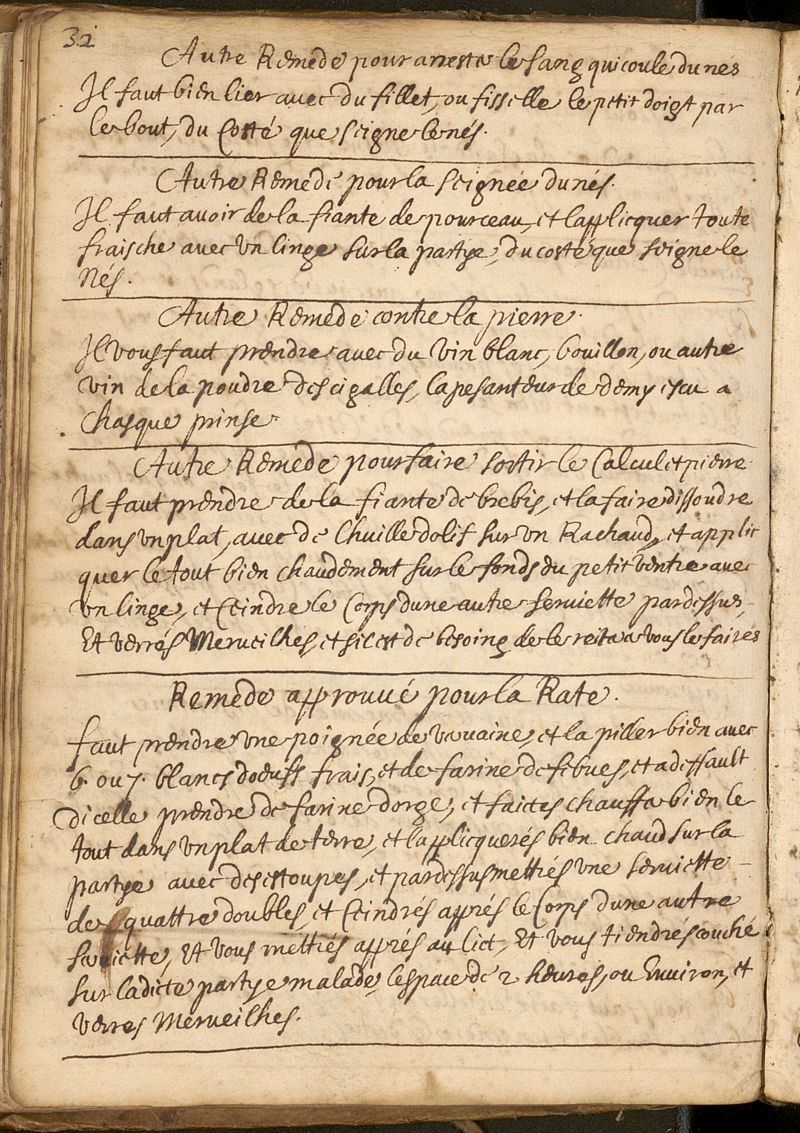 32
Autre Remede pour arrester le sang qui coule du nes
Il faut bien lier avec du fillet, ou fisselle le petit doigt par
le bout, du Costé que seigne le nés.
Autre Remede pour la seignée du nés.
Il faut avoir de la fiante de pourceau, et lapplicquer toute
fraische avec un linge sur la partye, du costé que seigne le
Nés.
Autre Remede contre la pierre.
Il vous faut prendre avec du vin blanc, bouillon, ou autre
vin de la poudre des cigalles, la pesanteur de demy escu a
Chasque prinse.
Autre Remede pour faire sortir le Calcul et pierre
Il faut prendre de la fiante de brebis, et la faire dissoudre
dans un plat, avec de Lhuille dolif sur un Rachaud, et applic
quer le tout bien chaudement sur le fonds du petit ventre avec
un linge, et Ceindre le Corps dune autre serviette par dessus,
Et verrés Merveilhes, et sil est de besoing de le reiterer vous le fairés
Remede approuvé pour la Rate.
faut prendre une poignée de vervaine, et la piller bien avec
6. ou 7. blancs doeufs frais, et de farine de febues, et a deffault
Dicelle prendre de farine dorge, et faictes chauffer bien le
tout dans un plat de terre, et lapplicquerés bien chaud sur la
partye avec des estoupes, et par dessus mettrés une serviette
de quattre doubles, et Ceindrés apprés le Corps dune autre
serviette, Et vous mettrés apprés au lict, Et vous tiendrés couché
sur ladicte partye malade, lespace de 2 heures, ou Environ, et
verres Merveilhes.